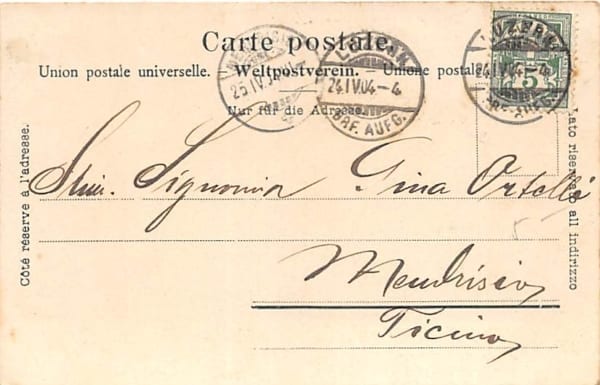 Carte postale.
Union postale universelle. — Weltpostverein. — Unione postale
Nur für die Adresse.
LUZERN
24.IV.04-4
BRF. AUFG.
LUZERN
24.IV.04-4
BRF. AUFG.
25.IV.04
5
Côté réservé à l'adresse.
Lato riservato all indirizzo
Signorina Gina Ortelli
Mendrisio
Ticino